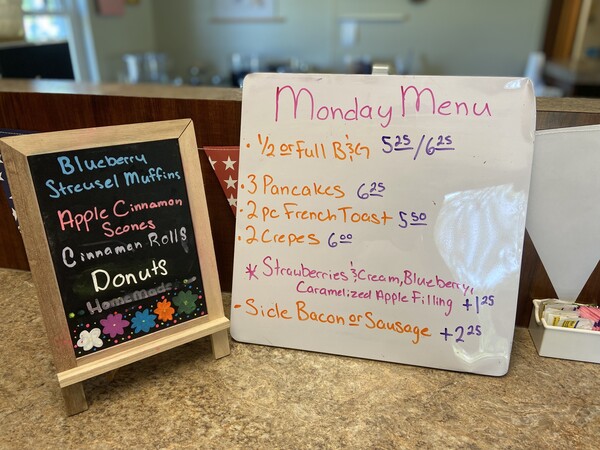 Blueberry
Streusel Muffins
Apple Cinnamon
Scones
Cinnamon Rolls
Donuts
Homemade
Monday Menu
• 1/2 or Full B&G 5.25/6.25
• 3 Pancakes 6.25
• 2 pc French Toast 5.50
• 2 Crepes 6.00
* Strawberries & Cream, Blueberry,
Caramelized Apple Filling +1.25
- Side Bacon or Sausage +2.25